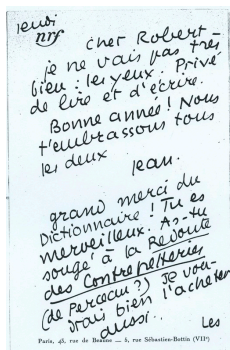 jeudi
nrf
Cher Robert
je ne vais pas très
bien : les yeux. Privé
de lire et d'écrire.
Bonne année ! Nous
t'embrassons tous
les deux
Jean.
grand merci du
Dictionnaire ! Tu es
merveilleux. As-tu
songé à la Redoute
des Contrepèteries
(de Perceau ?) Je vou-
drais bien l'acheter
aussi.
Les
Paris, 43, rue de Beaune — 5, rue Sébastien-Bottin (VIIe)